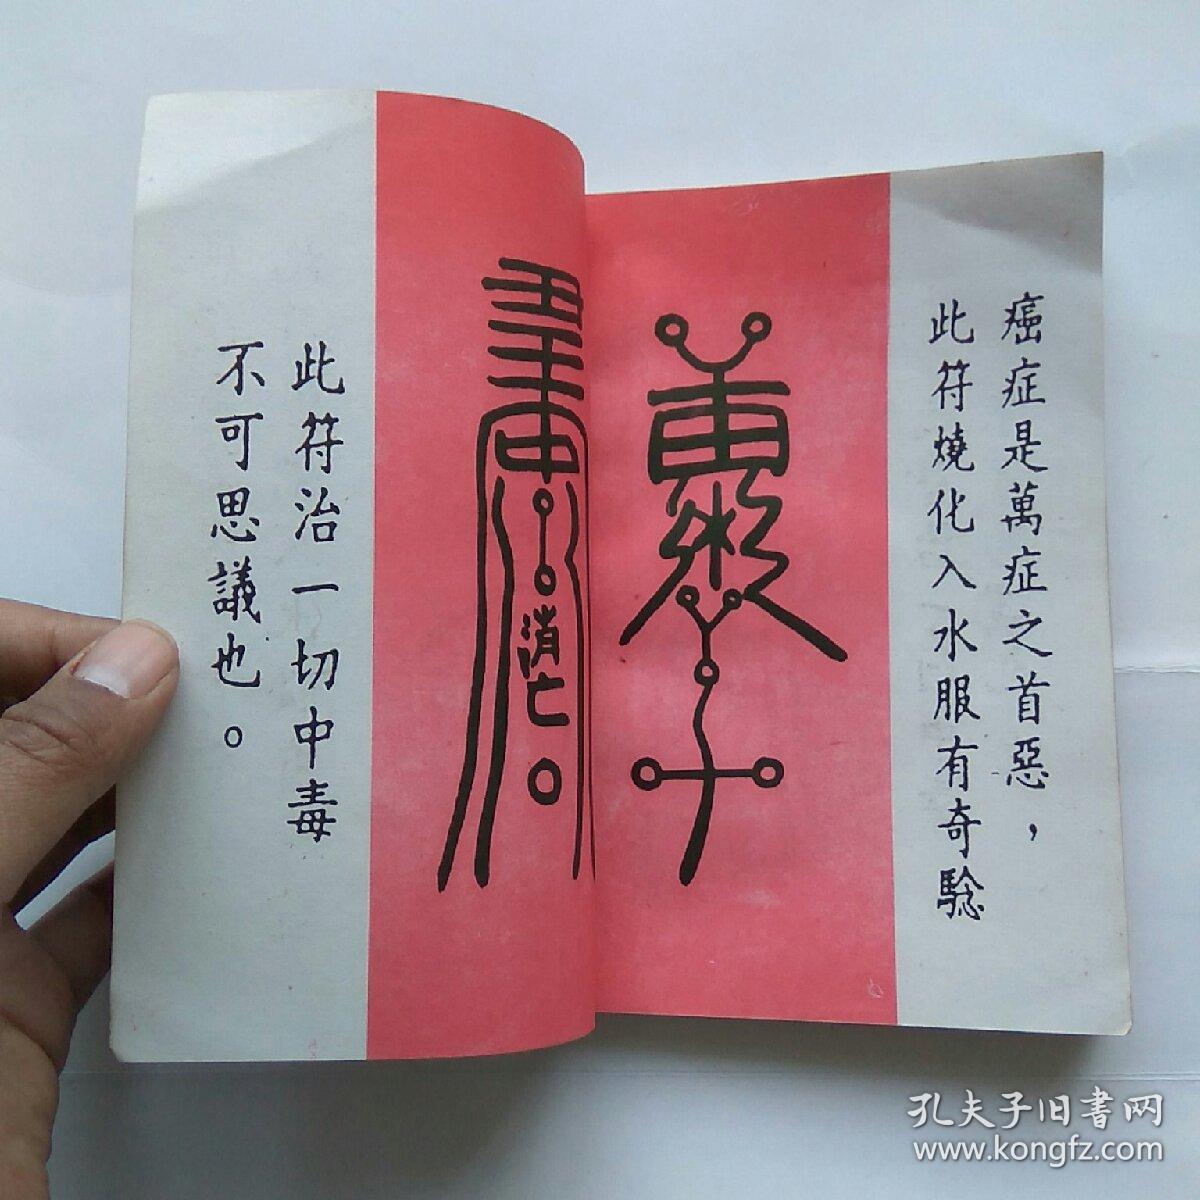 癌症是萬症之首惡，
此符燒化入水服有奇騐
此符治一切中毒
不可思議也。
孔夫子旧书网
www.kongfz.com